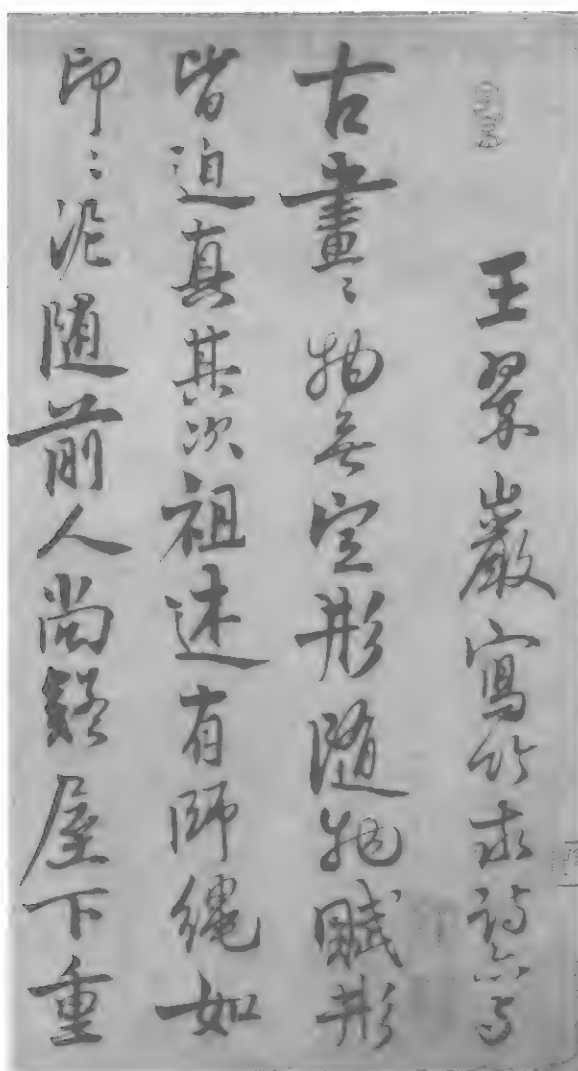 王翠巖寫竹求詩
古畫〻物無定形隨物賦形
皆迫真其次祖述有師繩如
印〻泥隨前人尚疑屋下重